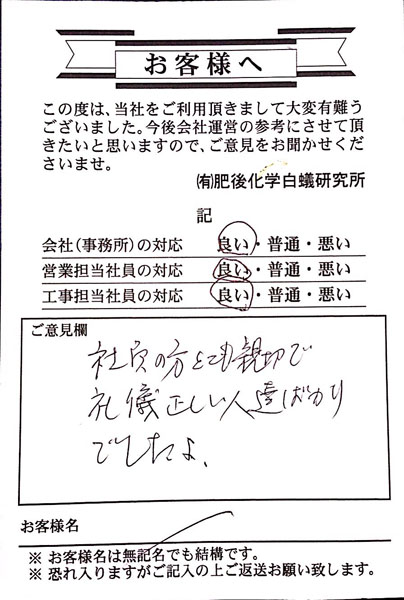 お客様へ
この度は、当社をご利用頂きまして大変有難う
ございました。今後会社運営の参考にさせて頂
きたいと思いますので、ご意見をお聞かせくだ
さいませ。
㈲肥後化学白蟻研究所
記
会社(事務所)の対応 良い・普通・悪い
営業担当社員の対応 良い・普通・悪い
工事担当社員の対応 良い・普通・悪い
ご意見欄
社員の方とても親切で
礼儀正しい人達ばかり
でしたよ、
お客様名
※ お客様名は無記名でも結構です。
※ 恐れ入りますがご記入の上ご返送お願い致します。